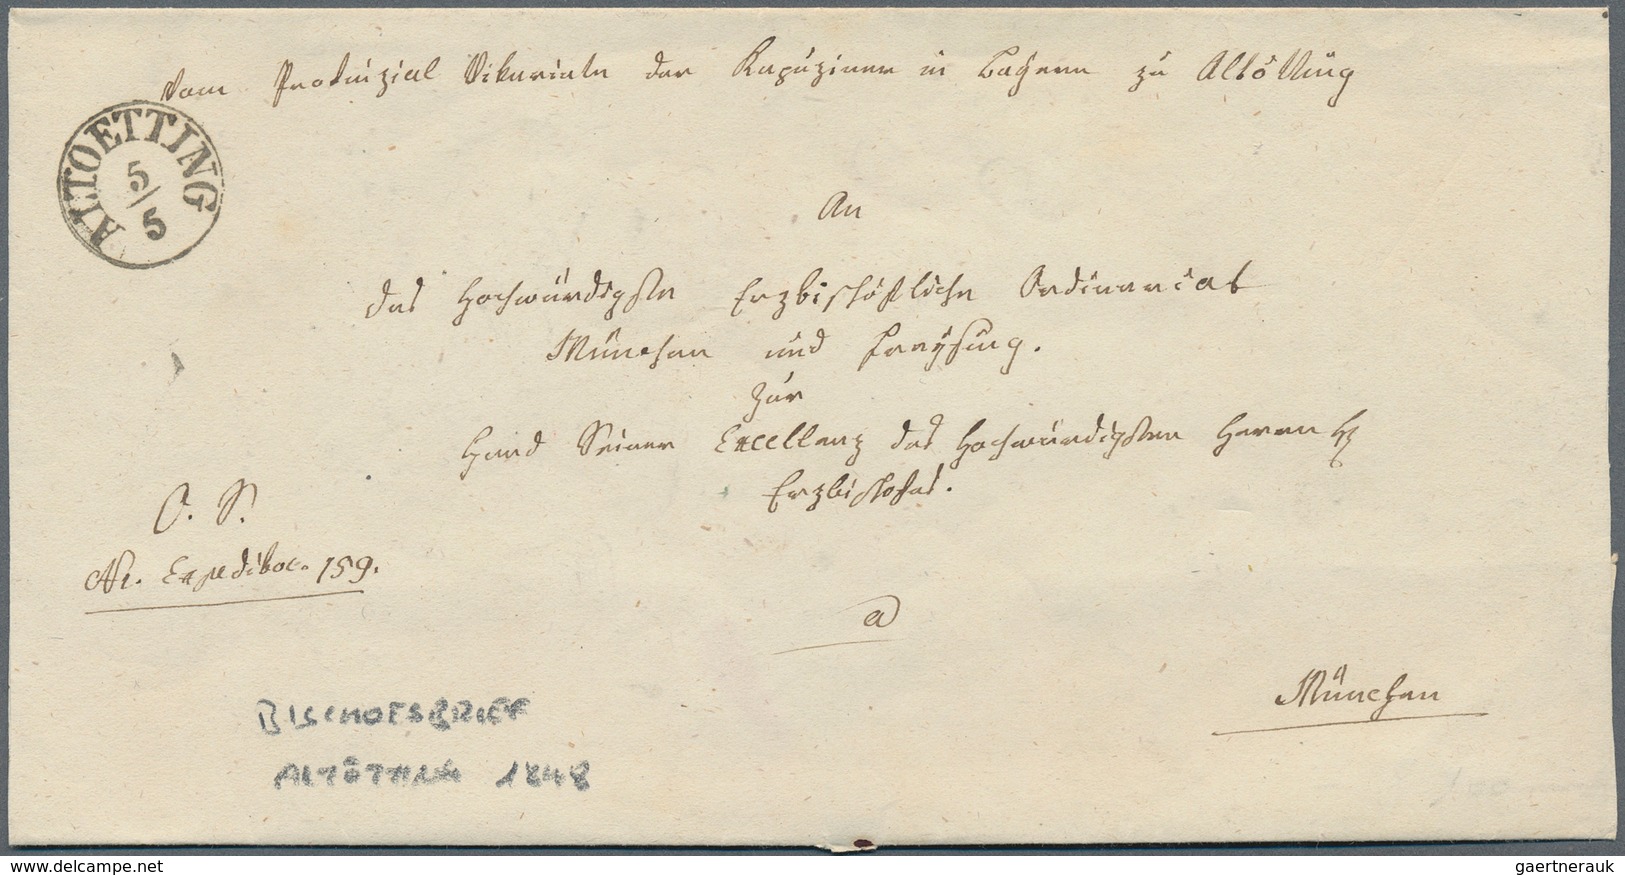 Vom Provinzial Vikariate der Kapuziner in Bayern zu Altötting
ALTOETTING
5/5
An
das Hochwürdigste Erzbischöfliche Ordinariat
München und Freysing.
Zur
Hand Seiner Excellenz des Hochwürdigsten Herrn H
Erzbischofes.
O. S.
Nr. Expedit 159.
a
München
BISCHOFSBRIEF
ALTÖTTING 1848
www.delcampe.net
gaertnerauk